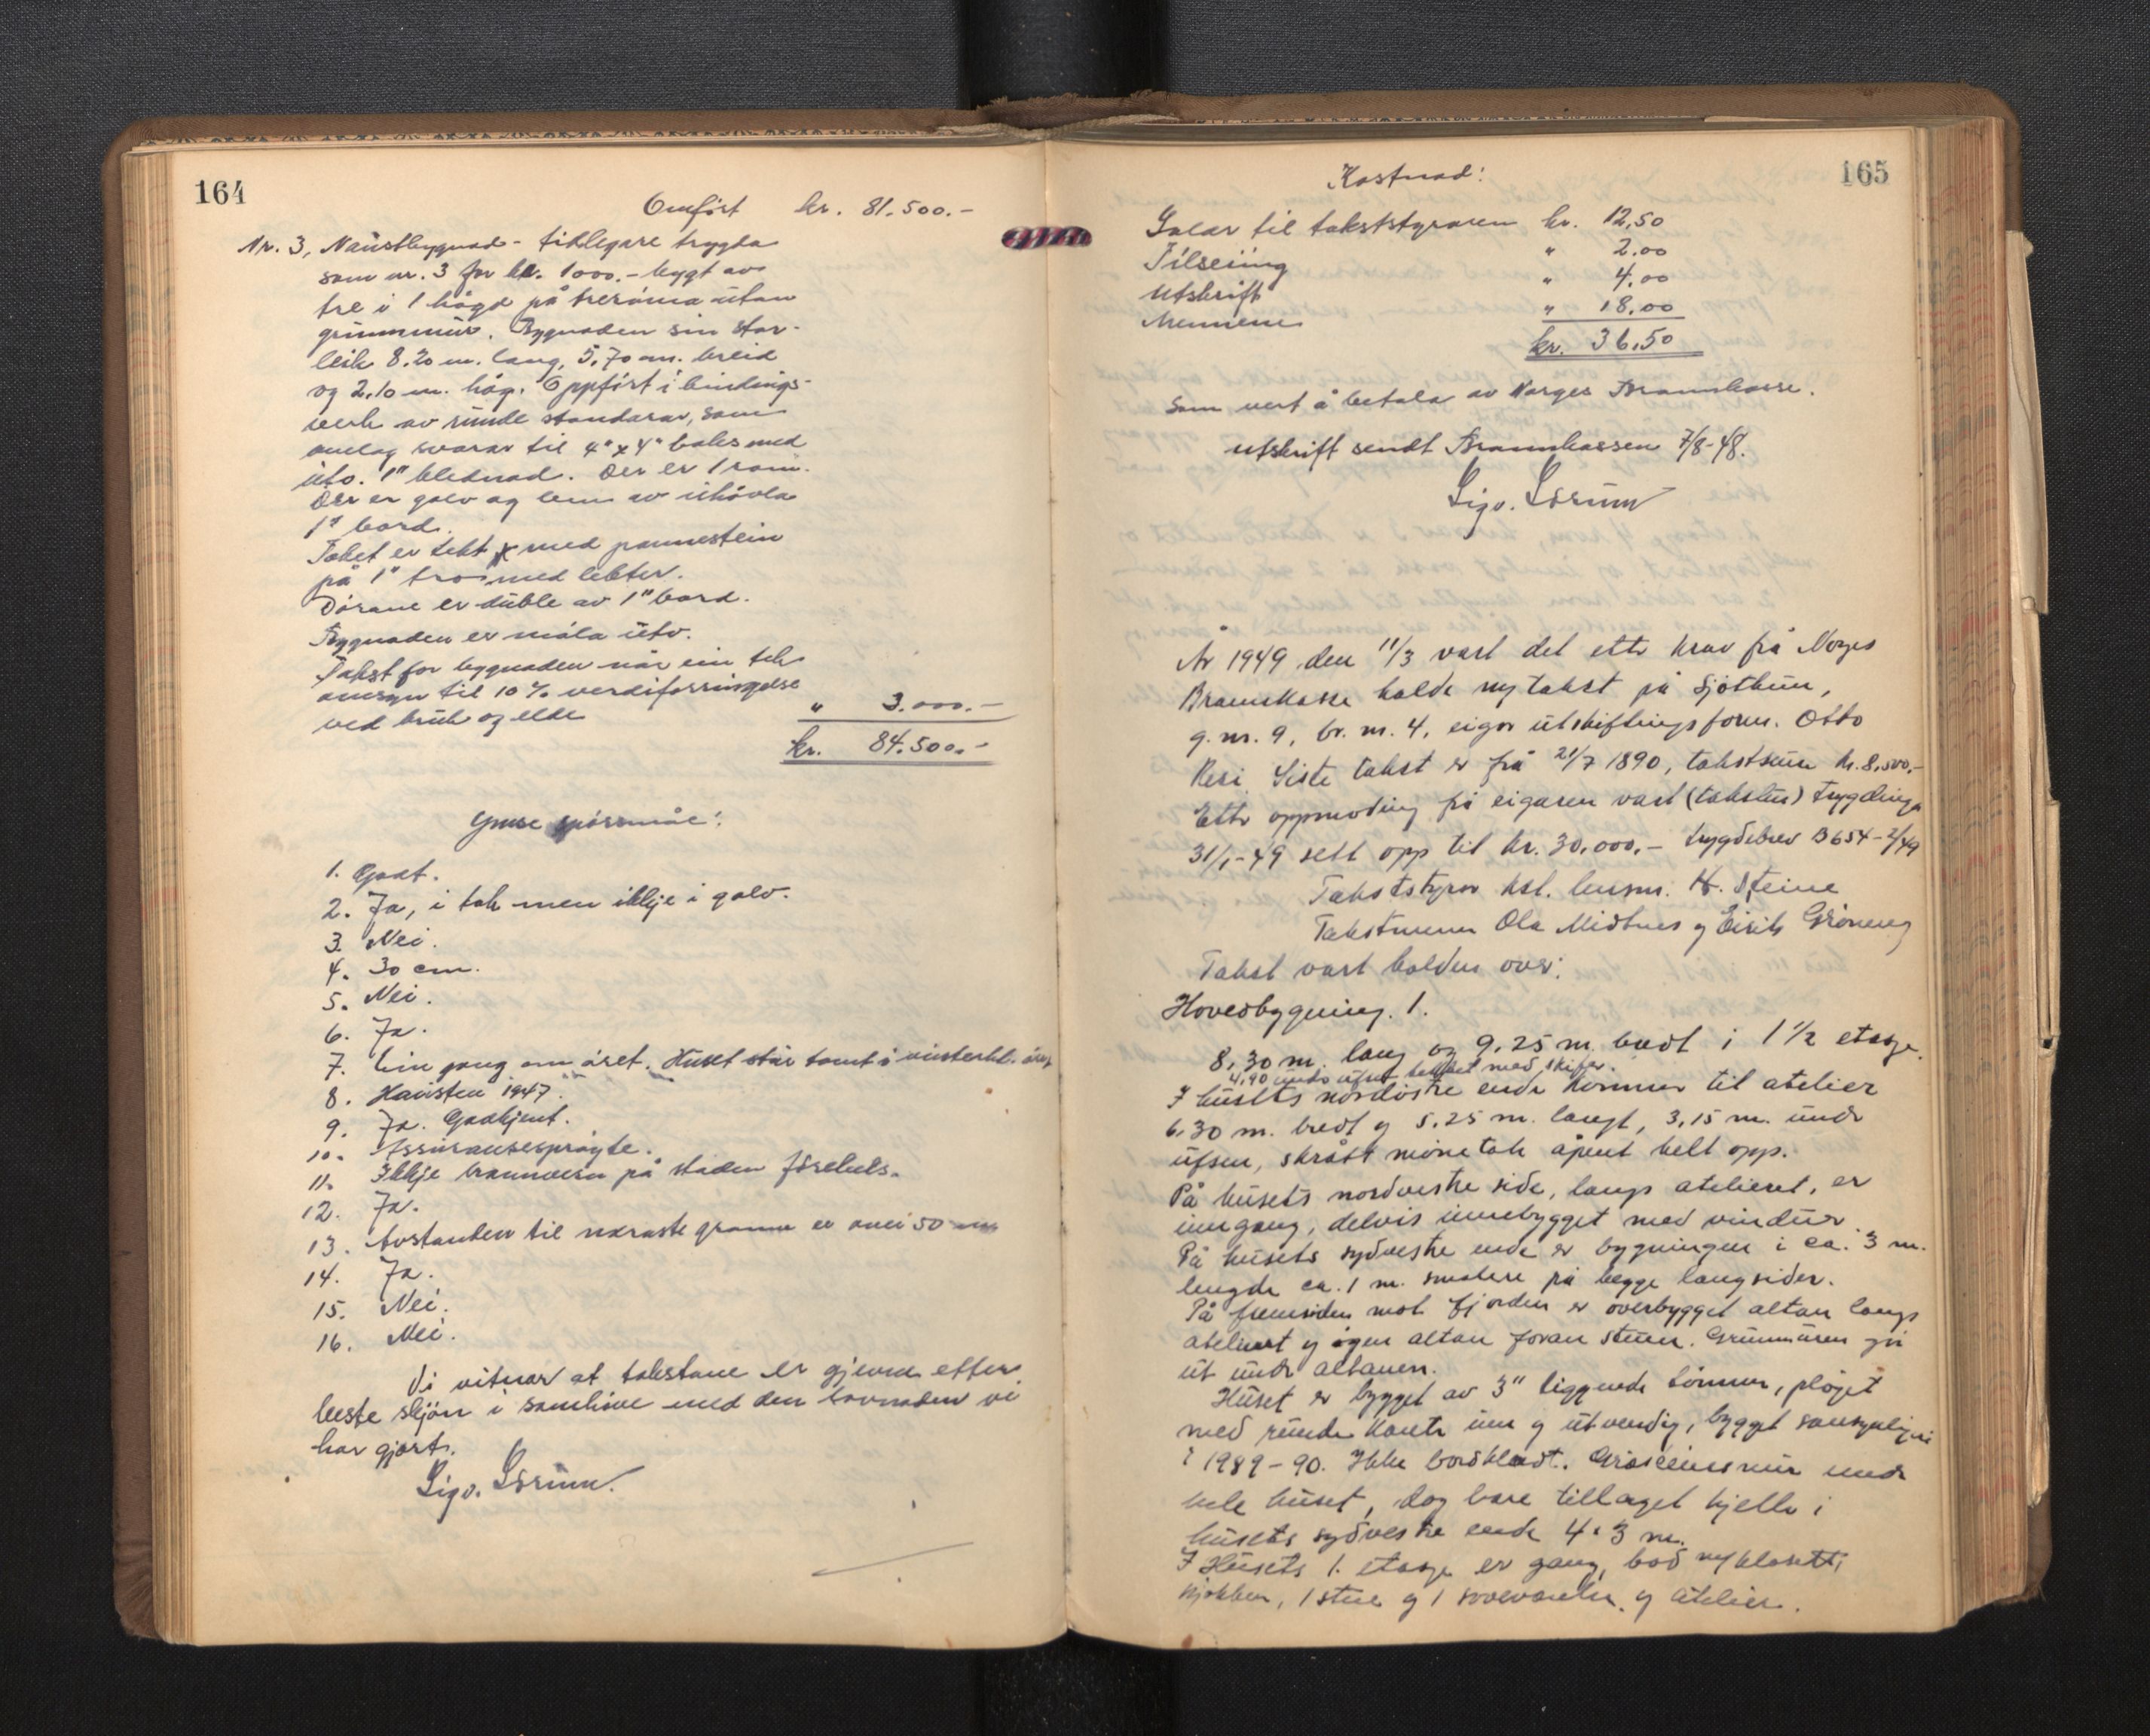 164
Omført kr. 81.500.-
Nr. 3, Naustbygnad - tidlegare trygda
som nr. 3 for kr. 1000.- bygt av
tre i 1 høgd på treróma utan
grunnmur. Bygnaden sin stor-
leik 8.20 m. lang, 5.70 m. breid
og 2.10 m. høg. Oppført i bindings-
verk av runde standarar, som
omlag svarar til 4"x4" boks med
utv. 1" klednad. Der er 1 rom.
Der er golv og lem av uhøvla
1" bord.
Taket er tekt med pannestein
på 1" tro med lekter.
Dørane er duble av 1" bord.
Bygnaden er måla utv.
Takst for bygnaden når ein tek
omsyn til 10% verdiforringelse
ved bruk og elde " 3.000.-
kr. 84.500.-
Ymse spørsmål:
1. Godt.
2. Ja, i tak men ikkje i golv.
3. Nei.
4. 30 cm.
5. Nei.
6. Ja.
7. Ein gong om året. Huset står tomt i vinterhl. året
8. Hausten 1947.
9. Ja. Godkjent.
10. Assuransesprøyte.
11. Ikkje brannvern på staden førebels.
12. Ja.
13. Avstanden til næraste granne er over 50 m
14. Ja.
15. Nei.
16. Nei.
Vi vitnar at takstane er gjevne etter
beste skjøn i samhøve med den kovnaden vi
har gjort.
Sigv. Sørum.
165
Kostnad:
Salær til takststyraren kr. 12,50
Tilseiing " 2.00
Utskrift " 4.00
Mennene " 18.00
kr. 36.50
Som vert å betala av Norges Brannkasse.
Utskrift sendt Brannkassen 7/8-48.
Sigv. Sørum
År 1949 den 11/3 vart det ettr krav frå Norges
Brannkasse halde ny takst på Sjøtun,
g.nr. 9, br. nr. 4, eigar utskiftingsform. Otto
Resi. Siste takst er frå 21/7 1890, takstsum kr. 8.500.-
Ettr oppmoding frå eigaren vart (taksten) trygdinga
31/1-49 sett opp til kr. 30.000.- trygdebrev B654-2/49
Takststyrar kst. lensm. H. Steine
Takstmenn Ola Midtnes og Eirik Grøneng
Takst vart halden over:
Hovedbygning. 1.
8,30 m. lang og 9.25 m. bredt i 1 1/2 etasje.
4,90 undr ufsen tekket med skifer.
I husets nordøstre ende kommer til atelier
6.30 m. bredt og 5.25 m. langt, 3,15 m. undr
ufsen, skrått mønetak åpent helt opp.
På husets nordvestre side, langs atelieret, er
inngang, delvis innebygget med vinduer.
På husets sydvestre ende er bygningen i ca. 3 m.
lengde ca. 1 m. smalere på begge langsider.
På fremsiden mot fjorden er overbygget altan langs
atelieret og åpen altan foran stuen. Grunnmuren går
ut undr altanen.
Huset er bygget av 3" liggende tømmer, pløyet
med runde kantr inn og utvendig, bygget sansynligvis
i 1989-90. Ikke bordkledt. Gråsteinsmur undr
hele huset, dog bare tillaget kjellr i
husets sydvestre ende 4 x 3 m.
I Husets 1. etasje er gang, bod m/klosett,
kjøkken, 1 stue og 1 soveværelse og atelier.